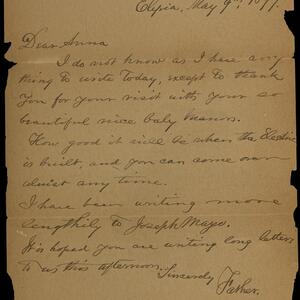 Elyria, May 9th, 1899.
Dear Anna
I do not know as I have any
thing to write today, except to thank
you for your visit with your so
beautiful nice baby
How good it will be when the Electric
is built, and you can come over
almost any time.
I have been writing more
lengthily to Joseph Mayo.
It is hoped you are writing long letters
to us this afternoon. Sincerely
Father.